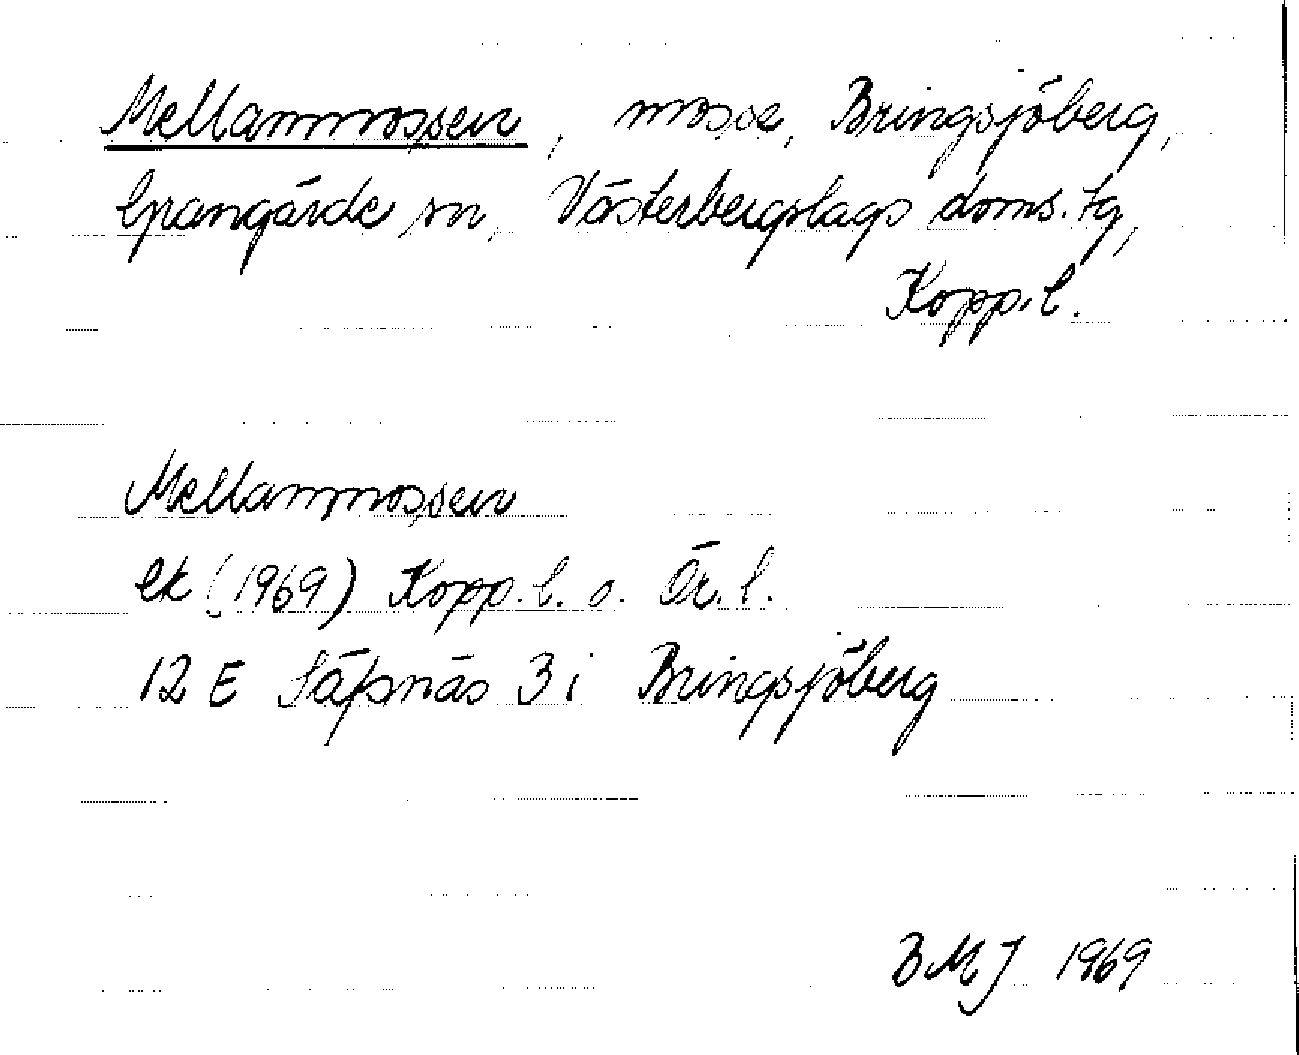 Mellanmossen, mosse, Bringsjöberg,
Grangärde sn, Västerbergslags doms. tg,
Kopp.l.
Mellanmossen
ek (1969) Kopp.l. o. Ör.l.
12 E Säfsnäs 3 i Bringsjöberg
BMJ 1969